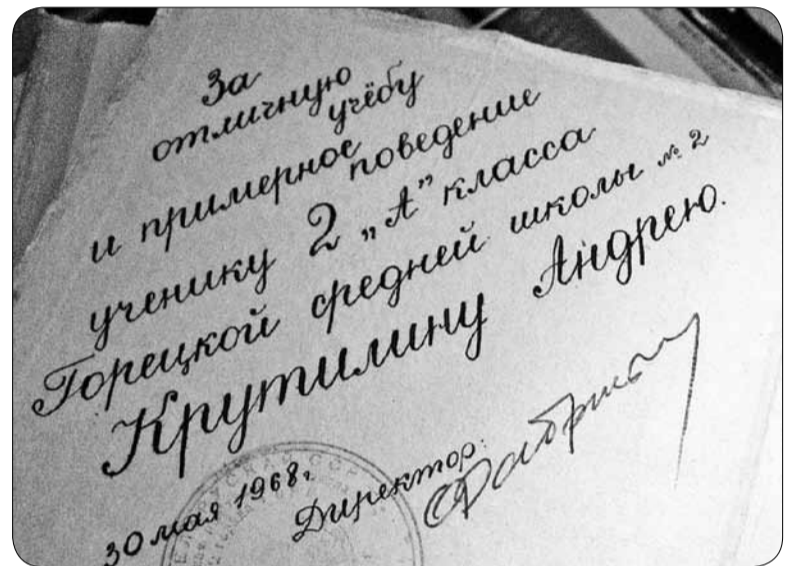 За
отличную
учёбу
и примерное
поведение
ученику 2 „А” класса
Горецкой средней школы № 2
Крутилину Андрею.
30 мая 1968г.
Директор: